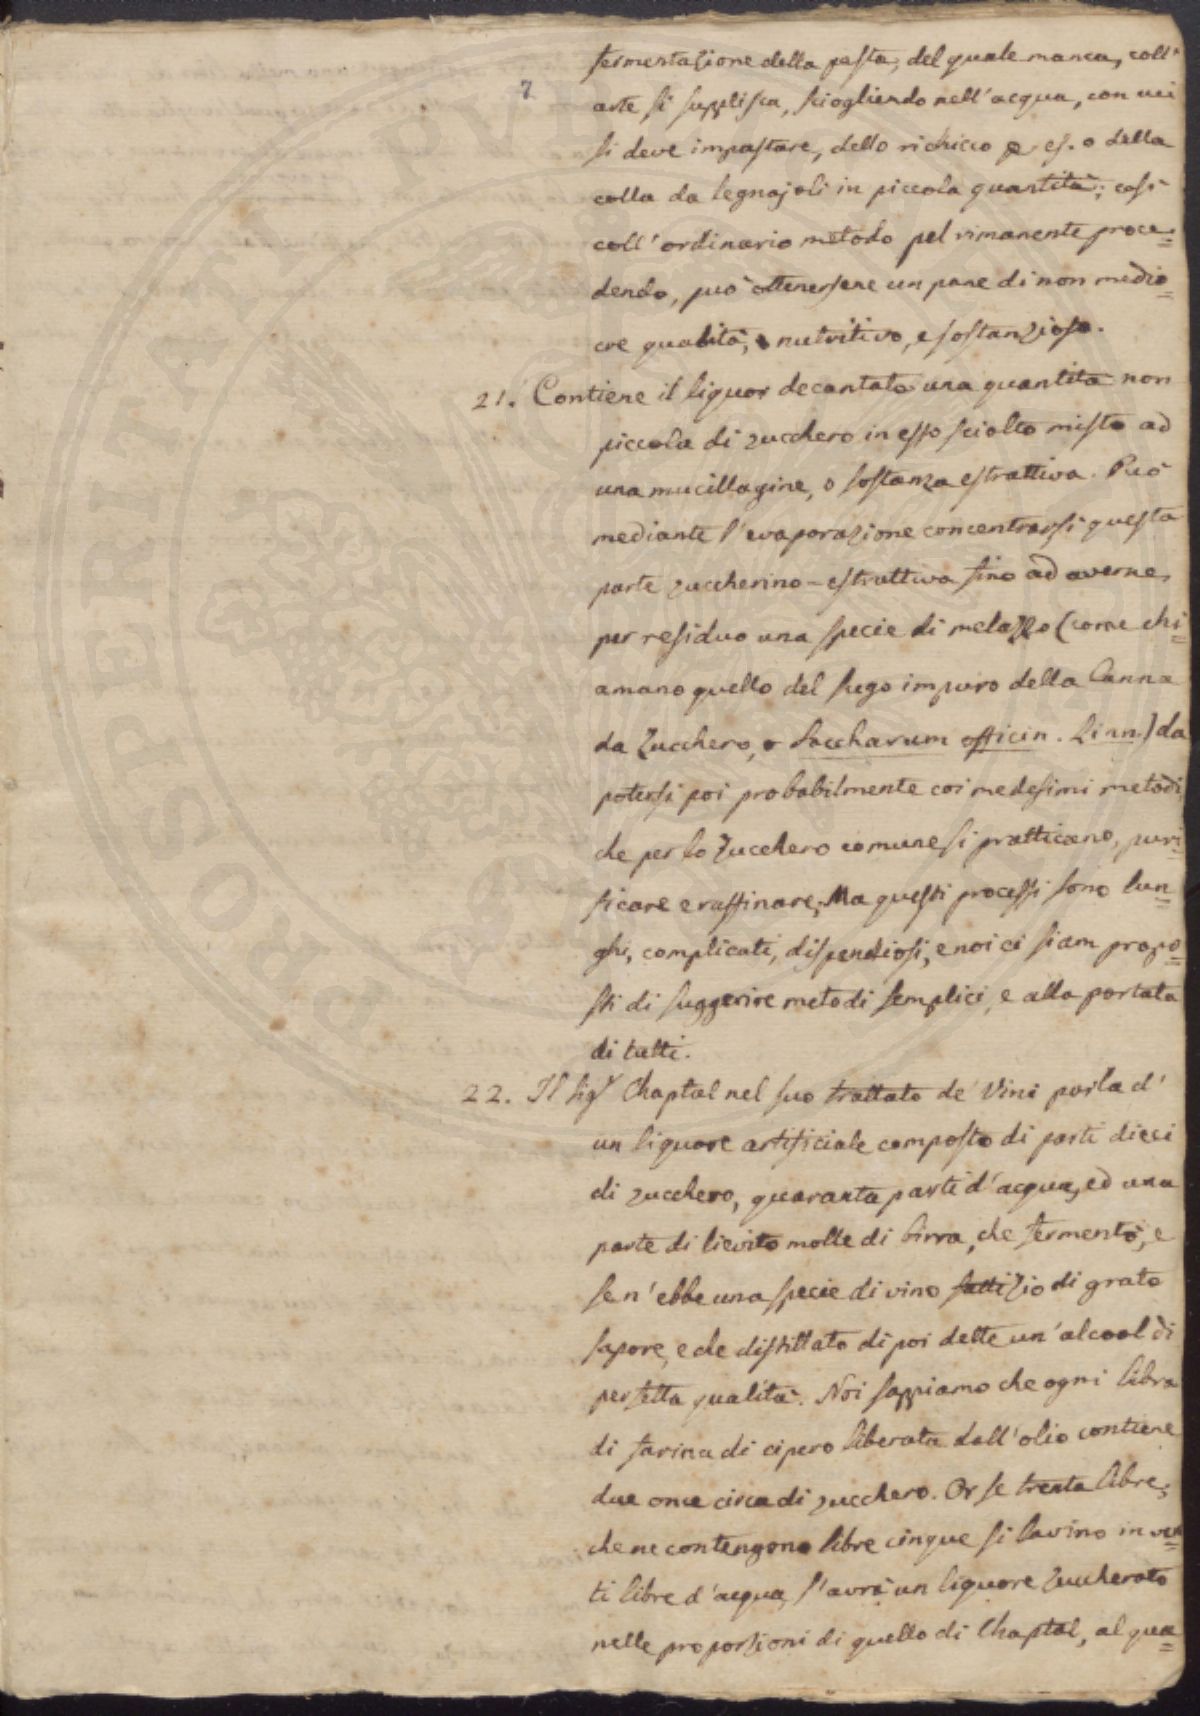 fermentazione della pasta, del quale manca, coll'
7
arte si supplisca, sciogliendo nell'acqua, con cui
si deve impastare, dello richicco p. es. o della
colla da legnajoli in piccola quantità; così
coll'ordinario metodo pel rimanente proce=
dendo, può ottenersene un pane di non medio=
cre qualità, nutritivo, e sostanzioso.
21. Contiene il liquor decantato una quantità non
piccola di zucchero in esso sciolto misto ad
una mucillagine, o sostanza estrattiva. Può
mediante l'evaporazione concentrarsi questa
parte zuccherino-estrattiva fino ad averne,
per residuo una specie di melazzo (come chi=
amano quello del sugo impuro della Canna
da Zucchero, o Saccharum officin. Linn.) da
potersi poi probabilmente coi medesimi metodi
che per lo Zucchero comune si pratticano, puri=
ficare e raffinare; Ma questi processi sono lun=
ghi, complicati, dispendiosi, e noi ci siam propo=
sti di suggerire metodi semplici, e alla portata
di tutti.
22. Il Sigr Chaptal nel suo trattato de' Vini parla d'
un liquore artificiale composto di parti dieci
di zucchero, quaranta parti d'acqua, ed una
parte di lievito molle di birra, che fermentò, e
se n'ebbe una specie di vino fattizio di grato
sapore, e che distillato di poi dette un'alcool di
perfetta qualità. Noi sappiamo che ogni libra
di farina di cipero liberata dall'olio contiene
due once circa di zucchero. Or se trenta libre,
che ne contengono libre cinque si lavino in ven=
ti libre d'acqua, s'avrà un liquore zuccherato
nelle proporzioni di quello di Chaptal, al qua=
PROSPERITATI PVBLICAE